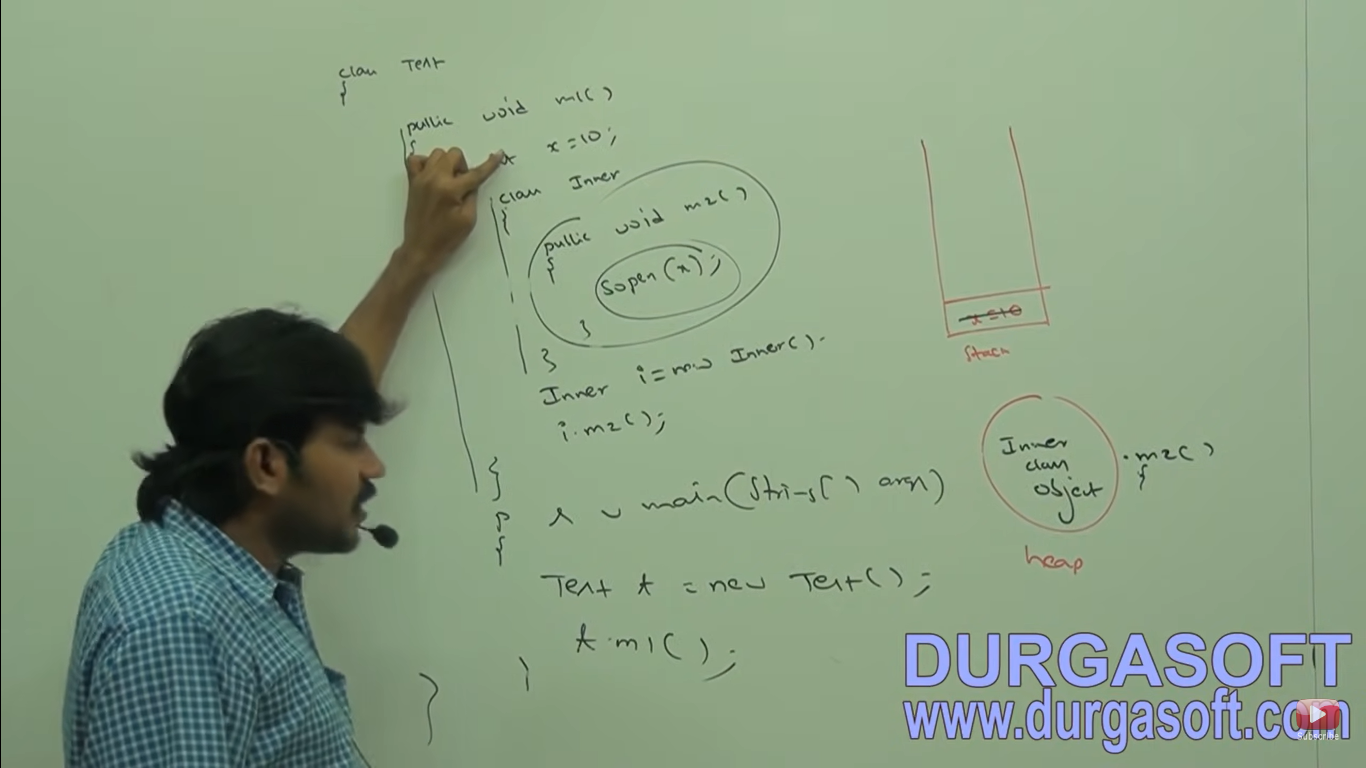 class Test
{
public void m1()
{
x=10;
class Inner
{
public void m2()
{
Sopln(x);
}
}
Inner i=new Inner().
i.m2();
}
p s v main(String() args)
{
Test t = new Test();
t.m1();
}
}
x=10
Stack
Inner
class
object
.m2()
{
heap
DURGASOFT
www.durgasoft.com
Subscribe